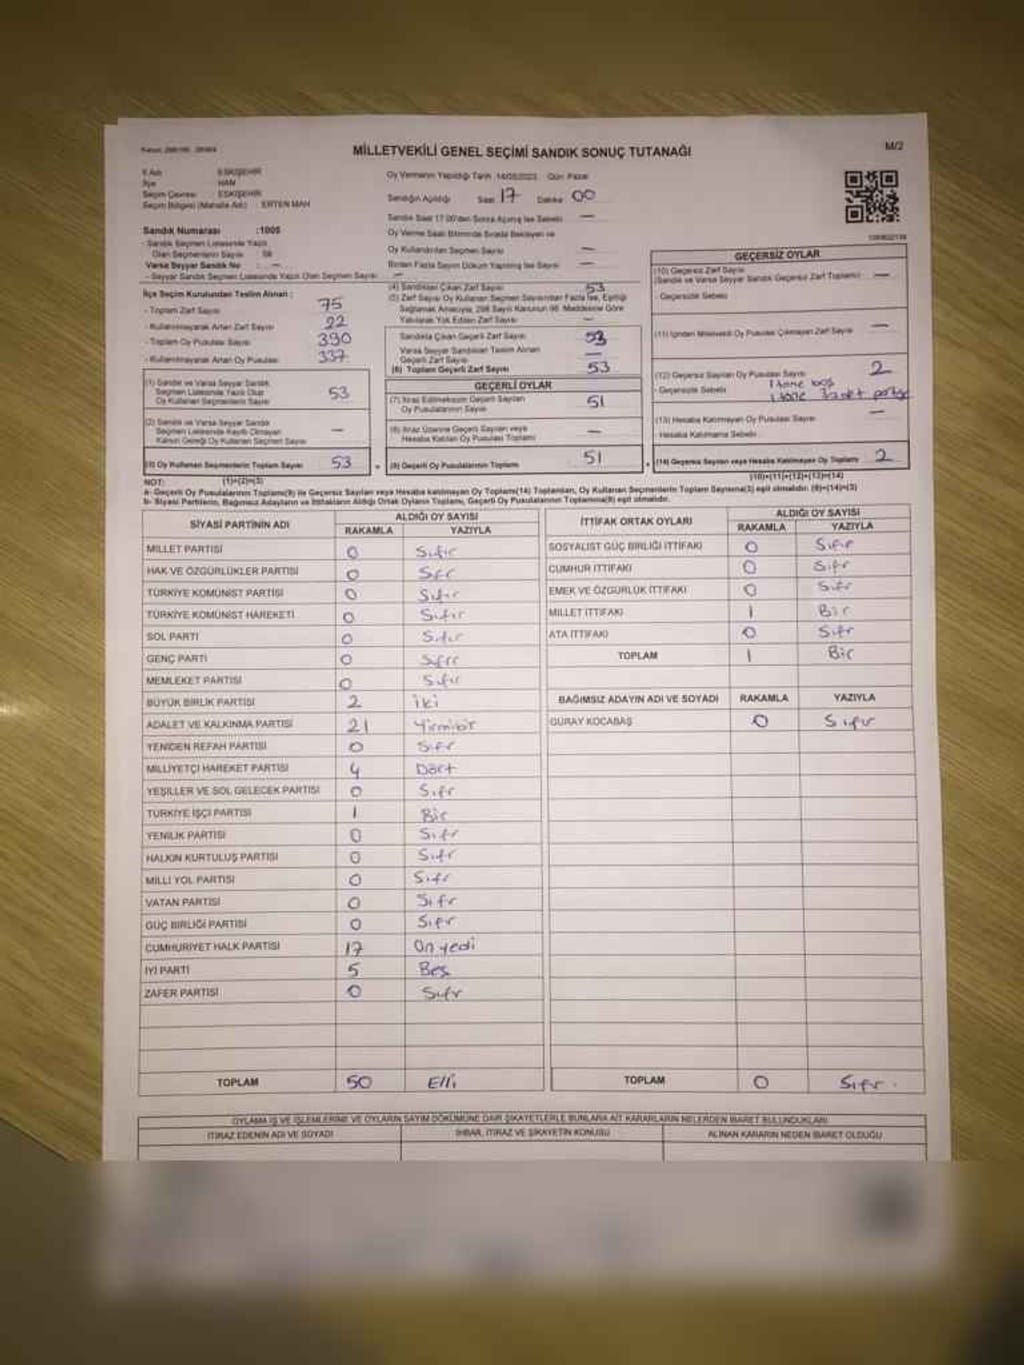 MİLLETVEKİLİ GENEL SEÇİMİ SANDIK SONUÇ TUTANAĞI
M/2
İl Adı : ESKİŞEHİR
İlçe : HAN
Seçim Çevresi : ESKİŞEHİR
Seçim Bölgesi (Mahalle Adı) : ERTEN MAH
Oy Vermenin Yapıldığı Tarih :14/05/2023 Gün: Pazar
Sandığın Açıldığı Saat 17 Dakika 00
Sandık Saat 17:00'den Sonra Açılmış İse Sebebi —
Oy Verme Saati Bitiminde Sırada Bekleyen ve
Oy Kullandırılan Seçmen Sayısı —
Birden Fazla Sayım Döküm Yapılmış İse Sayısı —
Sandık Numarası :1005
- Sandık Seçmen Listesinde Yazılı
Olan Seçmenlerin Sayısı
Varsa Seyyar Sandık No : —
- Seyyar Sandık Seçmen Listesinde Yazılı Olan Seçmen Sayısı : —
İlçe Seçim Kurulundan Teslim Alınan :
- Toplam Zarf Sayısı 75
- Kullanılmayarak Artan Zarf Sayısı 22
- Toplam Oy Pusulası Sayısı 390
- Kullanılmayarak Artan Oy Pusulası 337
(1) Sandık ve Varsa Seyyar Sandık
Seçmen Listesinde Yazılı Olup
Oy Kullanan Seçmenlerin Sayısı 53
(2) Sandık ve Varsa Seyyar Sandık
Seçmen Listesinde Kayıtlı Olmayan
Kanun Gereği Oy Kullanan Seçmen Sayısı —
(3) Oy Kullanan Seçmenlerin Toplam Sayısı 53
(1)+(2)=(3)
(4) Sandıktan Çıkan Zarf Sayısı 53
(5) Zarf Sayısı Oy Kullanan Seçmen Sayısından Fazla İse, Eşitliği
Sağlamak Amacıyla, 298 Sayılı Kanunun 98. Maddesine Göre
Yakılarak Yok Edilen Zarf Sayısı —
Sandıkta Çıkan Geçerli Zarf Sayısı 53
Varsa Seyyar Sandıktan Teslim Alınan
Geçerli Zarf Sayısı —
(6) Toplam Geçerli Zarf Sayısı 53
GEÇERLİ OYLAR
(7) İtiraz Edilmeksizin Geçerli Sayılan
Oy Pusulalarının Sayısı 51
(8) İtiraz Üzerine Geçerli Sayılan veya
Hesaba Katılan Oy Pusulası Toplamı —
(9) Geçerli Oy Pusulalarının Toplamı 51
GEÇERSİZ OYLAR
(10) Geçersiz Zarf Sayısı
(Sandık ve Varsa Seyyar Sandık Geçersiz Zarf Toplamı) —
- Geçersizlik Sebebi
(11) İçinden Milletvekili Oy Pusulası Çıkmayan Zarf Sayısı —
(12) Geçersiz Sayılan Oy Pusulası Sayısı 2
- Geçersizlik Sebebi 1 tane boş
1 tane 3 adet
(13) Hesaba Katılmayan Oy Pusulası Sayısı —
- Hesaba Katılmama Sebebi
(14) Geçersiz Sayılan veya Hesaba Katılmayan Oy Toplamı 2
(10)+(11)+(12)+(13)=(14)
NOT:
a- Geçerli Oy Pusulalarının Toplamı(9) ile Geçersiz Sayılan veya Hesaba katılmayan Oy Toplamı(14) Toplamları, Oy Kullanan Seçmenlerin Toplam Sayısına(3) eşit olmalıdır. (9)+(14)=(3)
b- Siyasi Partilerin, Bağımsız Adayların ve İttifakların Aldığı Ortak Oyların Toplamı, Geçerli Oy Pusulalarının Toplamına(9) eşit olmalıdır.
SİYASİ PARTİNİN ADI ALDIĞI OY SAYISI
RAKAMLA YAZIYLA
MİLLET PARTİSİ 0 Sıfır
HAK VE ÖZGÜRLÜKLER PARTİSİ 0 Sıfır
TÜRKİYE KOMÜNİST PARTİSİ 0 Sıfır
TÜRKİYE KOMÜNİST HAREKETİ 0 Sıfır
SOL PARTİ 0 Sıfır
GENÇ PARTİ 0 Sıfır
MEMLEKET PARTİSİ 0 Sıfır
BÜYÜK BİRLİK PARTİSİ 2 iki
ADALET VE KALKINMA PARTİSİ 21 Yirmibir
YENİDEN REFAH PARTİSİ 0 Sıfır
MİLLİYETÇİ HAREKET PARTİSİ 4 Dört
YEŞİLLER VE SOL GELECEK PARTİSİ 0 Sıfır
TÜRKİYE İŞÇİ PARTİSİ 1 Bir
YENİLİK PARTİSİ 0 Sıfır
HALKIN KURTULUŞ PARTİSİ 0 Sıfır
MİLLİ YOL PARTİSİ 0 Sıfır
VATAN PARTİSİ 0 Sıfır
GÜÇ BİRLİĞİ PARTİSİ 0 Sıfır
CUMHURİYET HALK PARTİSİ 17 On yedi
İYİ PARTİ 5 Beş
ZAFER PARTİSİ 0 Sıfır
TOPLAM 50 Elli
İTTİFAK ORTAK OYLARI ALDIĞI OY SAYISI
RAKAMLA YAZIYLA
SOSYALİST GÜÇ BİRLİĞİ İTTİFAKI 0 Sıfır
CUMHUR İTTİFAKI 0 Sıfır
EMEK VE ÖZGÜRLÜK İTTİFAKI 0 Sıfır
MİLLET İTTİFAKI 1 Bir
ATA İTTİFAKI 0 Sıfır
TOPLAM 1 Bir
BAĞIMSIZ ADAYIN ADI VE SOYADI RAKAMLA YAZIYLA
GÜRAY KOCABAŞ 0 Sıfır
TOPLAM 0 Sıfır.
OYLAMA İŞ VE İŞLEMLERİNE VE OYLARIN SAYIM DÖKÜMÜNE DAİR ŞİKAYETLERLE BUNLARA AİT KARARLARIN NELERDEN İBARET BULUNDUKLARI
İTİRAZ EDENİN ADI VE SOYADI İHBAR, İTİRAZ VE ŞİKAYETİN KONUSU ALINAN KARARIN NEDEN İBARET OLDUĞU